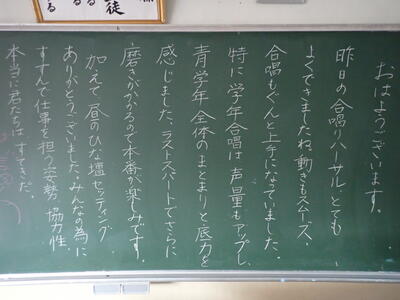 おはようございます。
昨日の合唱リハーサル、とても
よくできましたね。動きもスムーズ、
合唱もぐんと上手になっていました。
特に学年合唱は声量もアップし、
青学年全体のまとまりと底力を
感じました。ラストスパートでさらに
磨きがかかるので本番が楽しみです。
加えて昼のひな壇セッティング
ありがとうございました。みんなの為に
すすんで仕事を担う姿勢、協力性。
本当に君たちはすてきだ。
徒
る